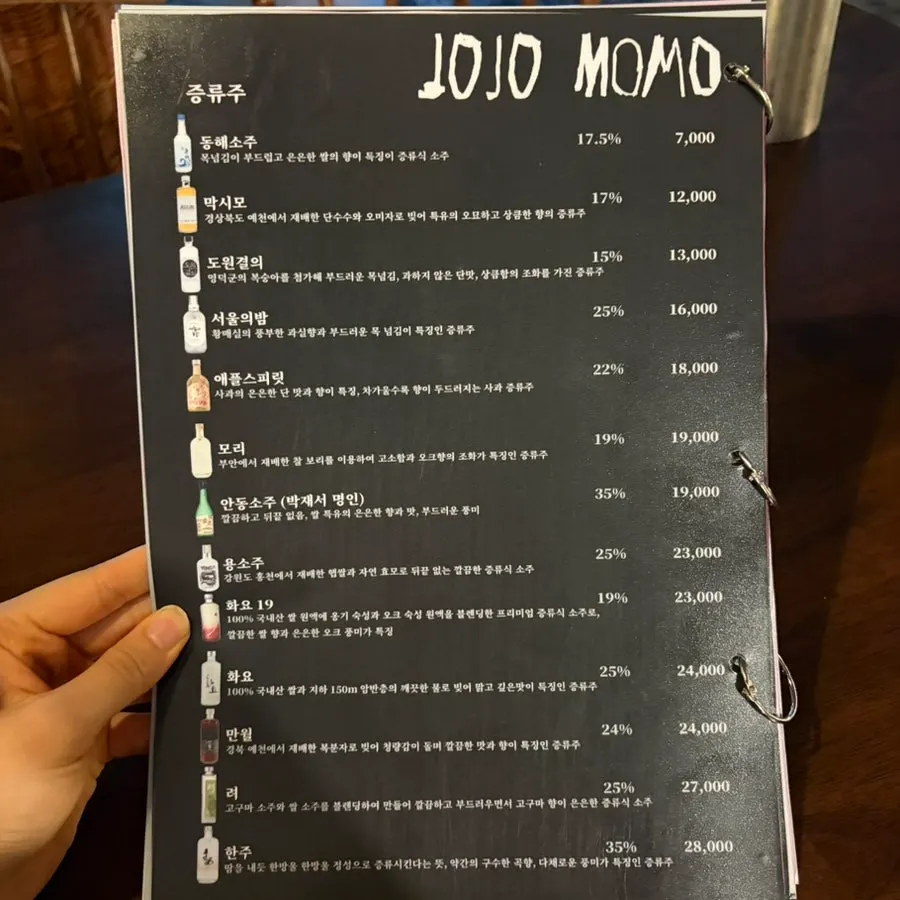 JOJO MOMO
증류주
동해소주 17.5% 7,000
목넘김이 부드럽고 은은한 쌀의 향이 특징이 증류식 소주
막시모 17% 12,000
경상북도 예천에서 재배한 단수수와 오미자로 빚어 특유의 오묘하고 상큼한 향의 증류주
도원결의 15% 13,000
영덕군의 복숭아를 첨가해 부드러운 목넘김, 과하지 않은 단맛, 상큼함의 조화를 가진 증류주
서울의밤 25% 16,000
황매실의 풍부한 과실향과 부드러운 목 넘김이 특징인 증류주
애플스피릿 22% 18,000
사과의 은은한 단 맛과 향이 특징, 차가울수록 향이 두드러지는 사과 증류주
모리 19% 19,000
부안에서 재배한 찰 보리를 이용하여 고소함과 오크향의 조화가 특징인 증류주
안동소주 (박재서 명인) 35% 19,000
깔끔하고 뒤끝 없음, 쌀 특유의 은은한 향과 맛, 부드러운 풍미
용소주 25% 23,000
강원도 홍천에서 재배한 햅쌀과 자연 효모로 뒤끝 없는 깔끔한 증류식 소주
화요 19 19% 23,000
100% 국내산 쌀 원액에 옹기 숙성과 오크 숙성 원액을 블렌딩한 프리미엄 증류식 소주로,
깔끔한 쌀 향과 은은한 오크 풍미가 특징
화요 25% 24,000
100% 국내산 쌀과 지하 150m 암반층의 깨끗한 물로 빚어 맑고 깊은맛이 특징인 증류주
만월 24% 24,000
경북 예천에서 재배한 복분자로 빚어 청량감이 돌며 깔끔한 맛과 향이 특징인 증류주
려 25% 27,000
고구마 소주와 쌀 소주를 블렌딩하여 만들어 깔끔하고 부드러우면서 고구마 향이 은은한 증류식 소주
한주 35% 28,000
땀을 내듯 한방울 한방울 정성으로 증류시킨다는 뜻, 약간의 구수한 곡향, 다채로운 풍미가 특징인 증류주